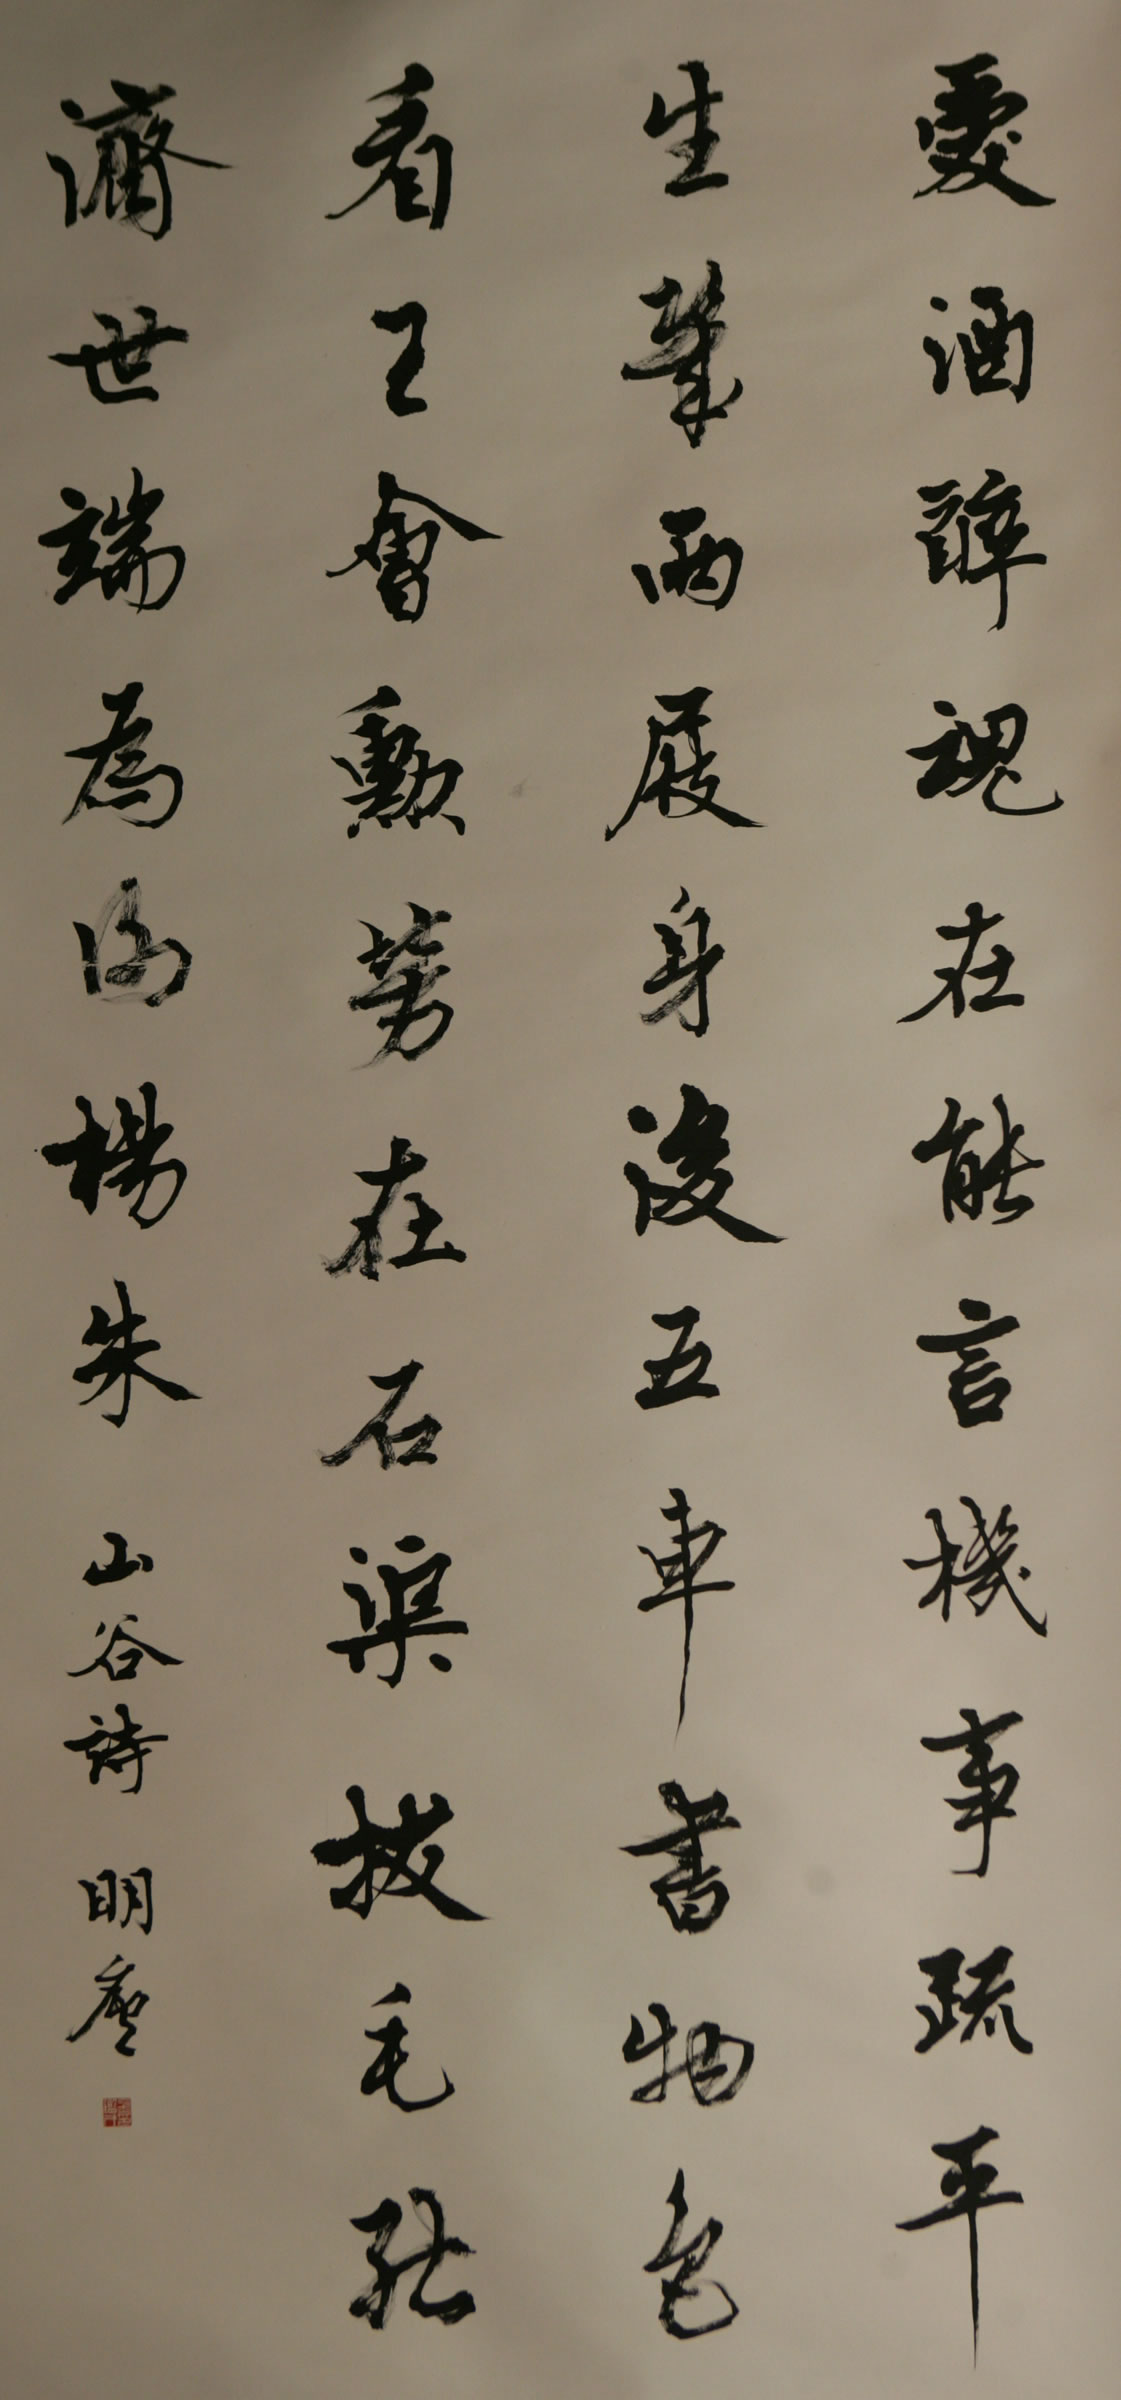 愛酒醉魂在能言機事疏平
生幾兩屐身後五車書物色
看王會勳勞在石渠拔毛能
濟世端為謝楊朱 山谷詩 明